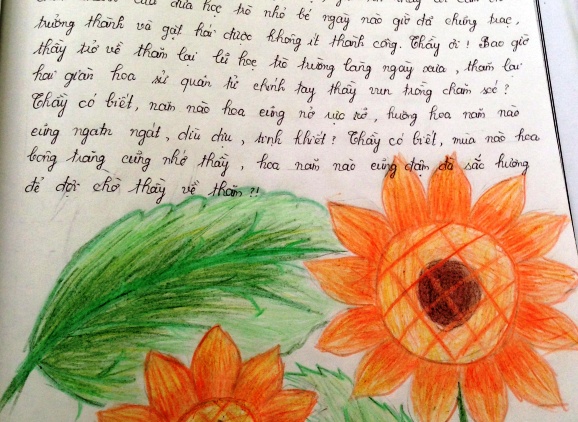 của đứa học trò nhỏ bé ngày nào giờ đã chững trạc,
trưởng thành và gặt hái được không ít thành công. Thầy ơi! Bao giờ
thầy trở về thăm lại lũ học trò trường làng ngày xưa, thăm lại
hai giàn hoa sử quân tử chính tay thầy vun trồng chăm sóc?
Thầy có biết, năm nào hoa cũng nở rực rỡ, hương hoa năm nào
cũng ngan ngát, dìu dịu, tinh khiết? Thầy có biết, mùa nào hoa
bông trắng cũng nhớ thầy, hoa năm nào cũng đậm đà sắc hương
để đợi chờ thầy về thăm?!